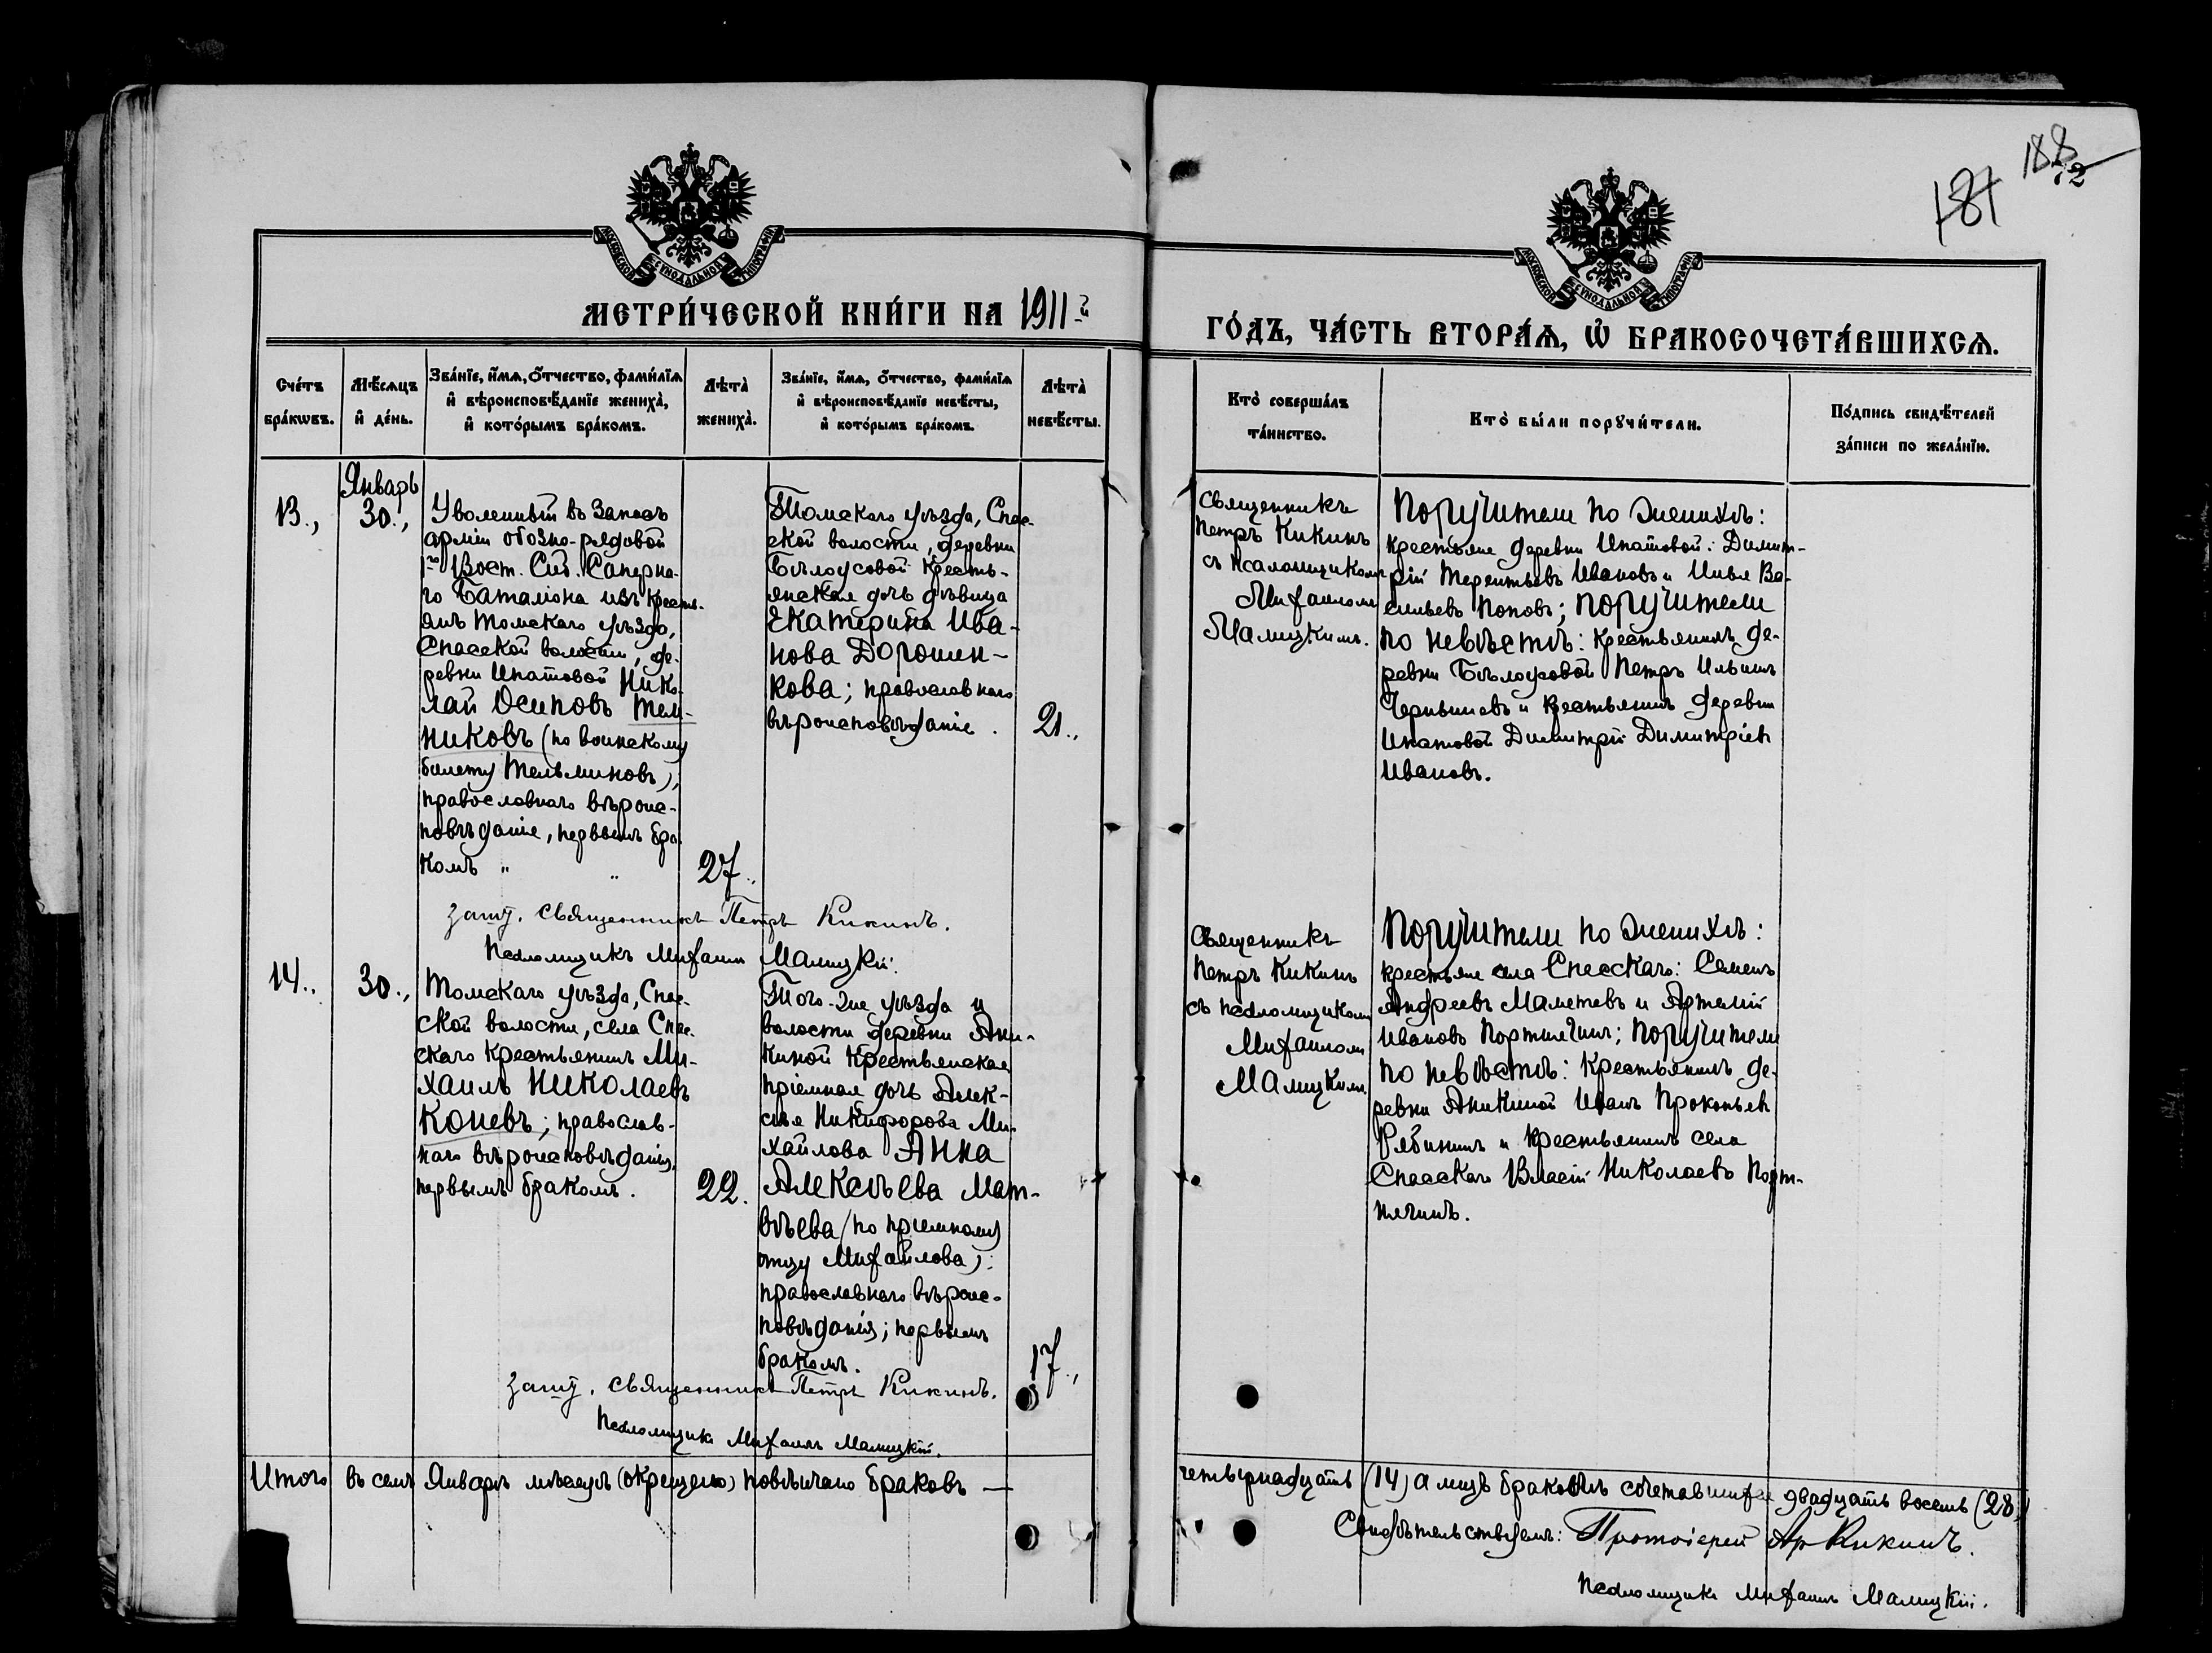 188
72
181
МОСКОВСКОЙ СѴНОДАЛЬНОЙ ТИПОГРАФІИ
МОСКОВСКОЙ СѴНОДАЛЬНОЙ ТИПОГРАФІИ
МЕТРИ́ЧЕСКОЙ КНИ́ГИ НА 1911й
ГО́ДЪ, ЧА́СТЬ ВТОРА́Ѧ, Ѡ҆ БРАКОСОЧЕТА́ВШИХСѦ.
Сче́тъ бра́кѡвъ.
Мѣ́сѧцъ и҆ де́нь.
Зва́нїе, и҆́мѧ, ѻ҆́тчество, фами́лїѧ
и҆ вѣроисповѣ́данїе жениха̀,
и҆ кото́рымъ бра́комъ.
Лѣта̀ жениха̀.
Зва́нїе, и҆́мѧ, ѻ҆́тчество, фами́лїѧ
и҆ вѣроисповѣ́данїе невѣ́сты,
и҆ кото́рымъ бра́комъ.
Лѣта̀ невѣ́сты.
Кто̀ соверша́лъ та́инство.
Кто̀ бы́ли порꙋчи́тели.
По́дпись свидѣ́телей
за́писи по жела́нїю.
13.,
Январь
30.,
Уволенный въ запасъ
арміи обозно-рядовой
1го Вост. Сиб. Саперна-
го Баталіона изъ кресть-
янъ Томскаго уѣзда,
Спасской волости, де-
ревни Ипатовой Нико-
лай Осиповъ Тель-
никовъ (по воинскому
билету Тельминовъ),
православнаго вѣроис-
повѣданіе, первымъ бра-
комъ " "
27.,
Томскаго уѣзда, Спас-
ской волости, деревни
Бѣлоусовой кресть-
янская дочь дѣвица
Екатерина Ива-
нова Дорошен-
кова; православнаго
вѣроисповѣданіе.
21.,
Священникъ
Петръ Кикинъ
съ псаломщикомъ
Михаиломъ
Малицкимъ.
Поручители по женихѣ:
крестьяне деревни Ипатовой: Димит-
рій Терентьевъ Ивановъ и Илья Ва-
сильевъ Поповъ; поручители
по невѣстѣ: крестьянинъ де-
ревни Бѣлоусовой Петръ Ильинъ
Чернышевъ и крестьянинъ деревни
Ипатовой Димитрій Димитріевъ
Ивановъ.
Священникъ Петръ Кикинъ.
Псаломщикъ Михаилъ Малицкій.
14..
30.,
Томскаго уѣзда, Спас-
ской волости, села Спас-
скаго крестьянинъ Ми-
хаилъ Николаевъ
Коневъ; православ-
наго вѣроисповѣданія,
первымъ бракомъ.
22.
Того-же уѣзда и
волости деревни Ани-
киной крестьянская
пріемная дочь Алек-
сѣя Никифорова Ми-
хайлова Анна
Алексѣева Мат-
вѣева (по пріемному
отцу Михайлова);
православнаго вѣроис-
повѣданія; первымъ
бракомъ.
17.,
Священникъ
Петръ Кикинъ
съ псаломщикомъ
Михаиломъ
Малицкимъ
Поручители по женихѣ:
крестьяне села Спасскаго: Семенъ
Андреевъ Маметевъ и Артемій
Ивановъ Портнягинъ; поручители
по невѣстѣ: крестьянинъ де-
ревни Аникиной Иванъ Прокопьевъ
Рябининъ и крестьянинъ села
Спасскаго Власій Николаевъ Порт-
нягинъ.
Священникъ Петръ Кикинъ.
Псаломщикъ Михаилъ Малицкій.
Итого въ семъ Январѣ мѣсяцѣ (окрещено) повѣнчано браковъ —
четырнадцать (14) а лицъ бракомъ сочетавшихся двадцать восемь (28)
Свидѣтельствуемъ: Протоіерей Ар Кикинъ.
Псаломщикъ Михаилъ Малицкій.